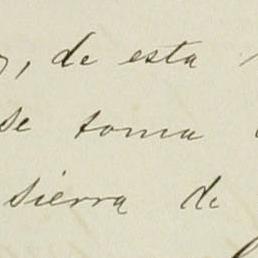 , de esta
se toma
sierra de